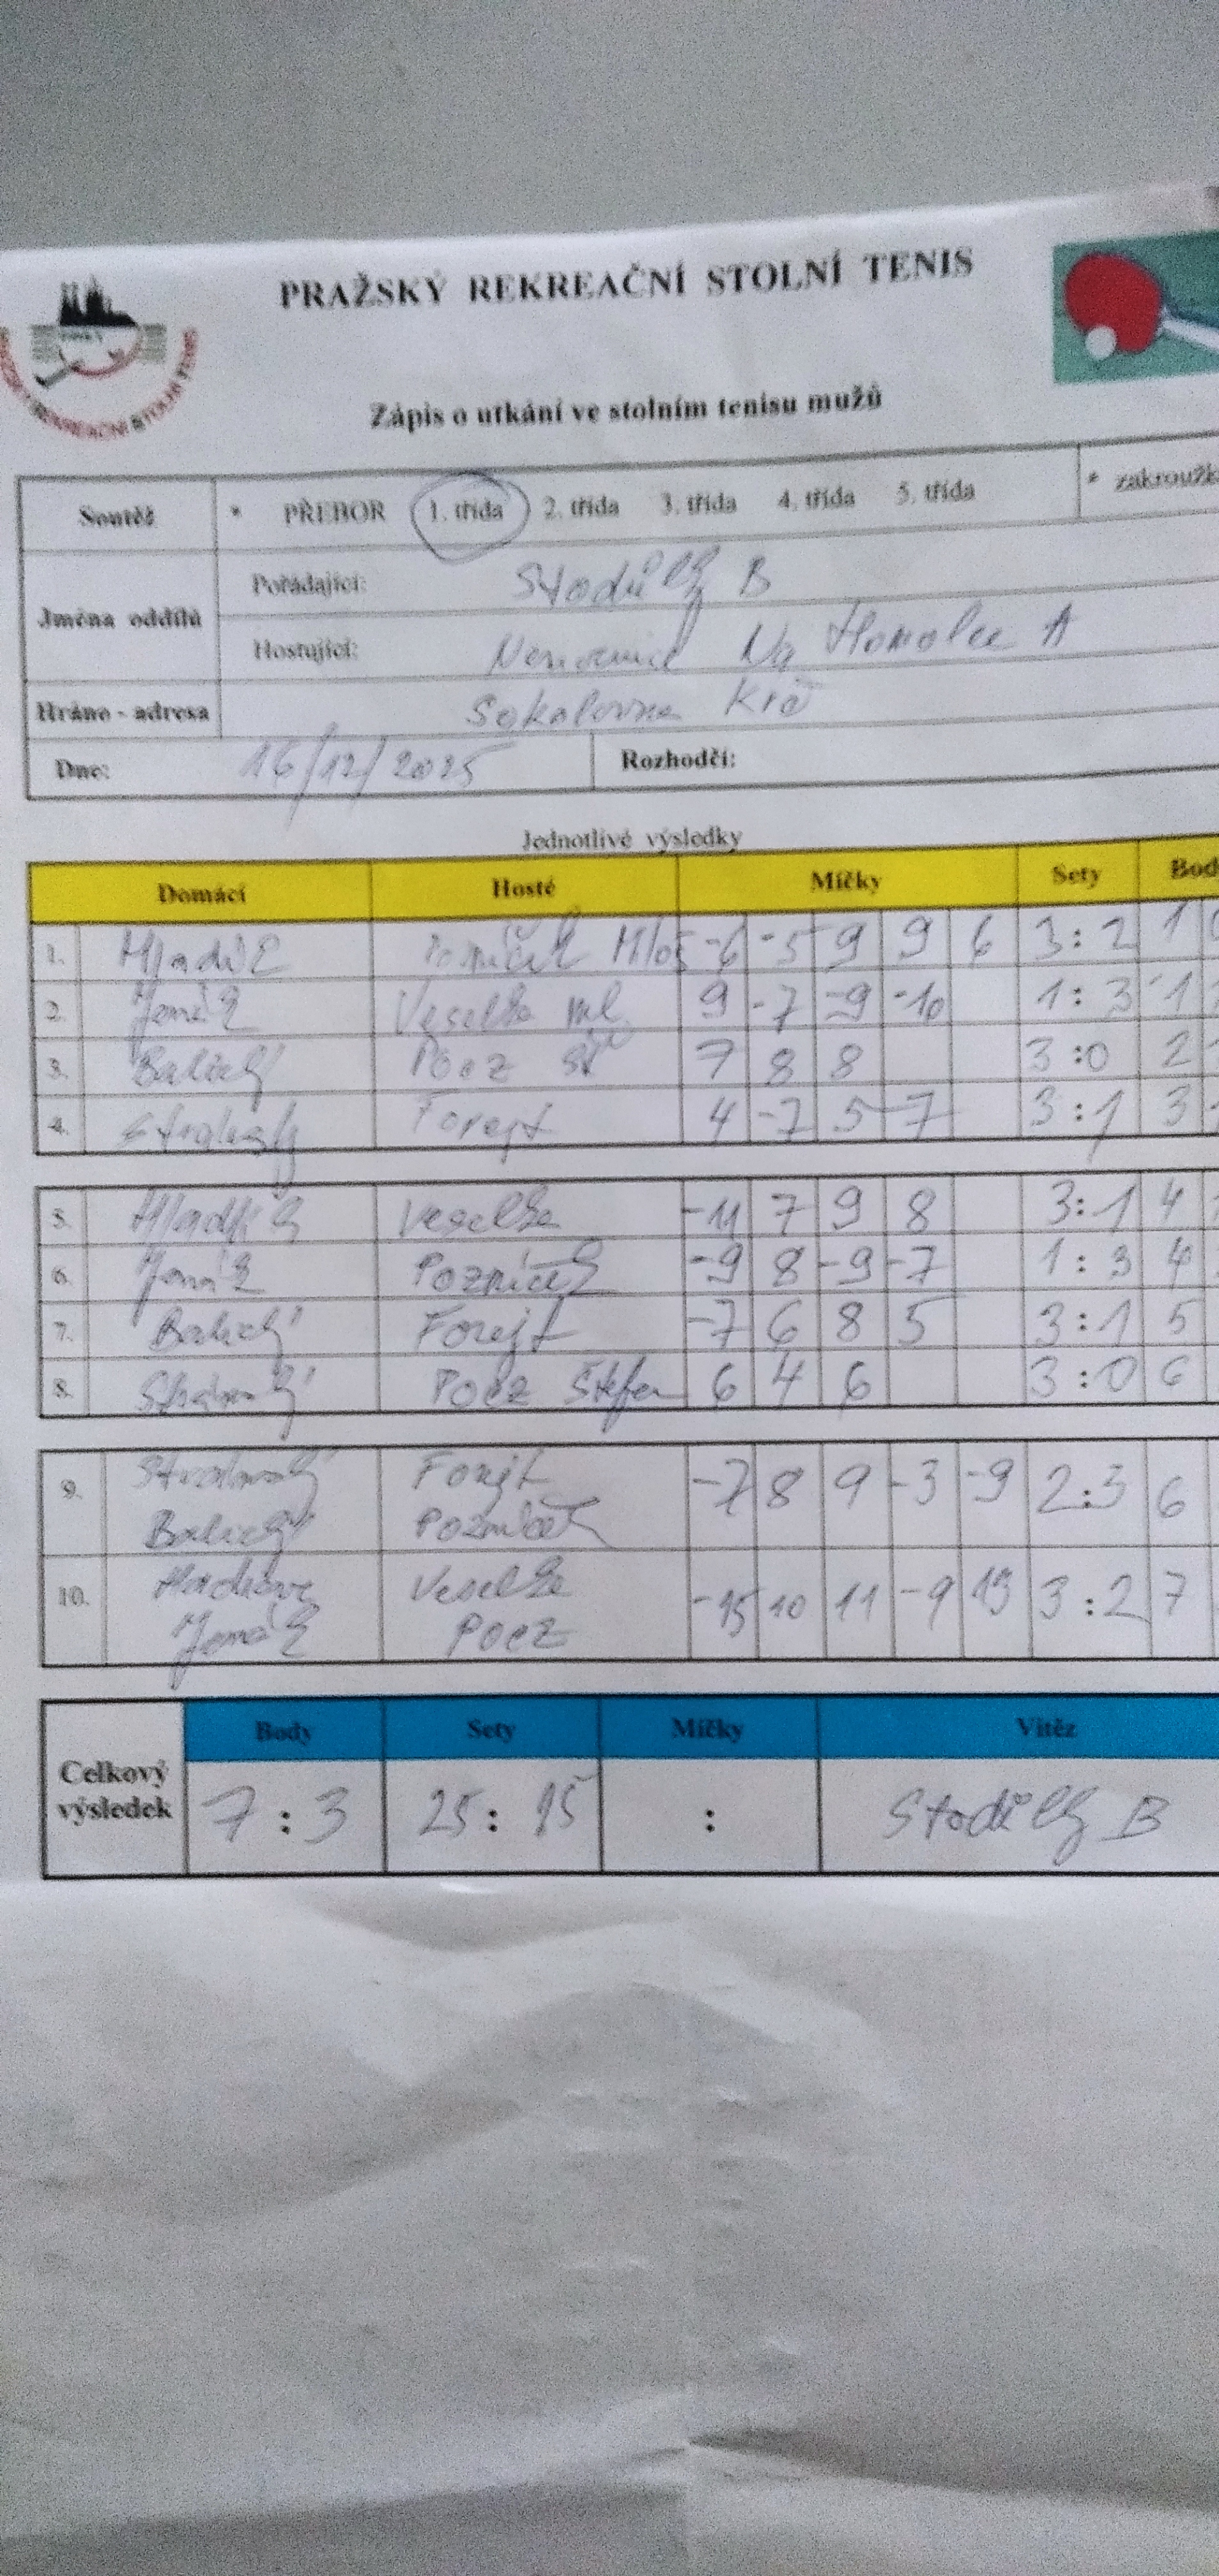 PRAŽSKÝ REKREAČNÍ STOLNÍ TENIS
REKREAČNÍ STOLNÍ TENIS
Zápis o utkání ve stolním tenisu mužů
Soutěž * PŘEBOR 1. třída 2. třída 3. třída 4. třída 5. třída * zakroužk
Jména oddílů
Pořádající: Stodůlky B
Hostující: Nemocnice Na Homolce A
Hráno - adresa Sokolovna Krč
Dne: 16/12/2025 Rozhodčí:
Jednotlivé výsledky
Domácí Hosté Míčky Sety Bod
1. Hladík Pozníček Miloš -6 -5 9 9 6 3:2 1
2. Jonáš Veselka ml 9 -7 -9 -10 1:3 1
3. Balický Pocz St 7 8 8 3:0 2
4. Forejt 4 -7 5 7 3:1 3
5. Hladík Veselka -11 7 9 8 3:1 4
6. Jonáš Pozníček -9 8 -9 -7 1:3 4
7. Balický Forejt -7 6 8 5 3:1 5
8. Pocz Štefan 6 4 6 3:0 6
9. Forejt -7 8 9 -3 -9 2:3 6
Balický Pozníček
10. Veselka -15 10 11 -9 13 3:2 7
Jonáš Pocz
Celkový výsledek
Body Sety Míčky Vítěz
7:3 25:15 : Stodůlky B